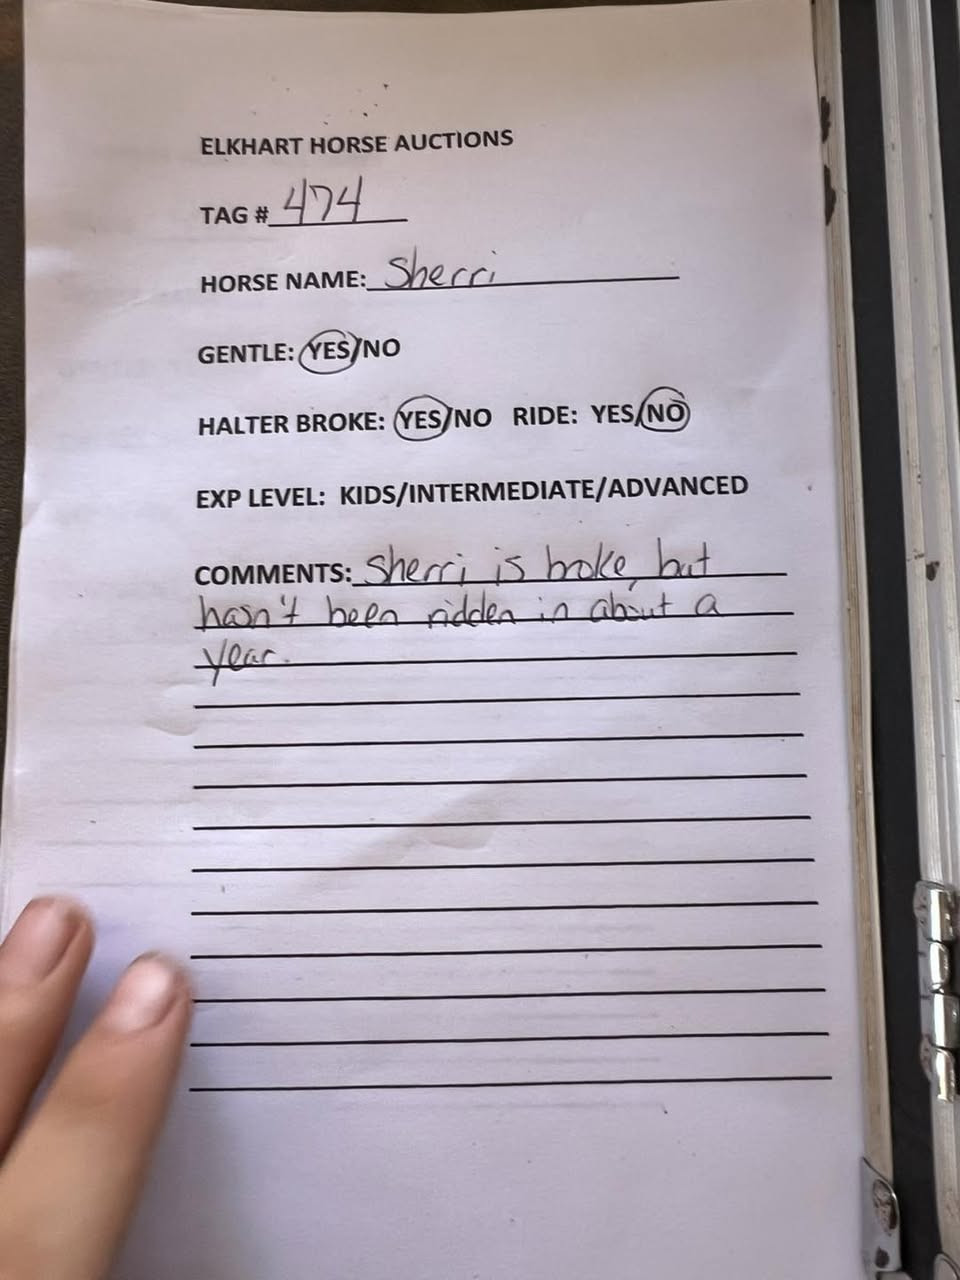 ELKHART HORSE AUCTIONS
TAG # 474
HORSE NAME: Sherri
GENTLE: YES/NO
HALTER BROKE: YES/NO RIDE: YES/NO
EXP LEVEL: KIDS/INTERMEDIATE/ADVANCED
COMMENTS: Sherri is broke, but
hasn't been ridden in about a
year.